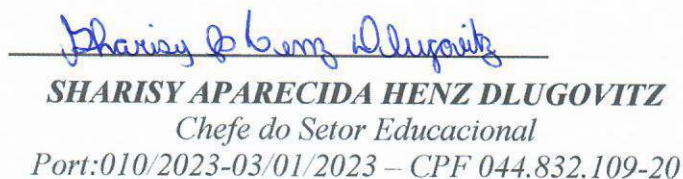 Sharisy Ap Henz Dlugovitz
SHARISY APARECIDA HENZ DLUGOVITZ
Chefe do Setor Educacional
Port:010/2023-03/01/2023 – CPF 044.832.109-20